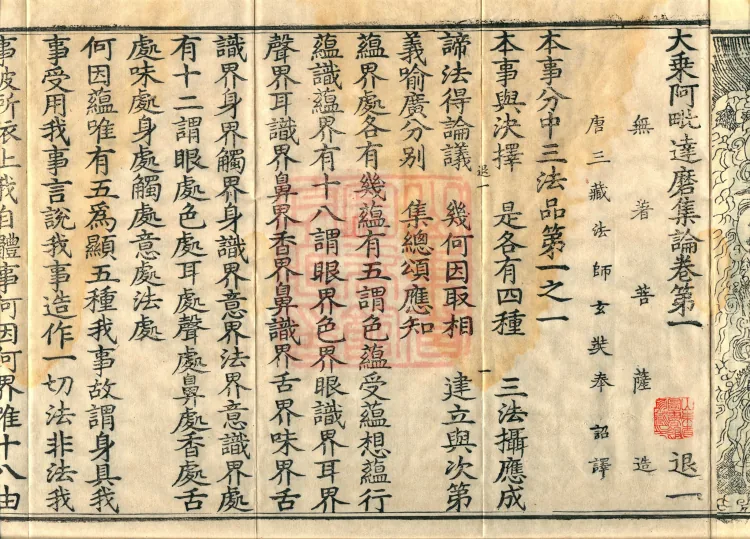 大乘阿毗達磨集論卷第一　退一
無著菩薩造
唐三藏法師玄奘奉　詔譯
本事分中三法品第一之一
本事與決擇　是各有四種　三法攝應成
諦法得論議　幾何因取相　建立與次第
退一　一
義喻廣分別　集總頌應知
蘊界處各有幾蘊有五謂色蘊受蘊想蘊行
蘊識蘊界有十八謂眼界色界眼識界耳界
聲界耳識界鼻界香界鼻識界舌界味界舌
識界身界觸界身識界意界法界意識界處
有十二謂眼處色處耳處聲處鼻處香處舌
處味處身處觸處意處法處
何因蘊唯有五為顯五種我事故謂身具我
事受用我事言說我事造作一切法非法我
事彼所依止我自體事何因何界唯十八由